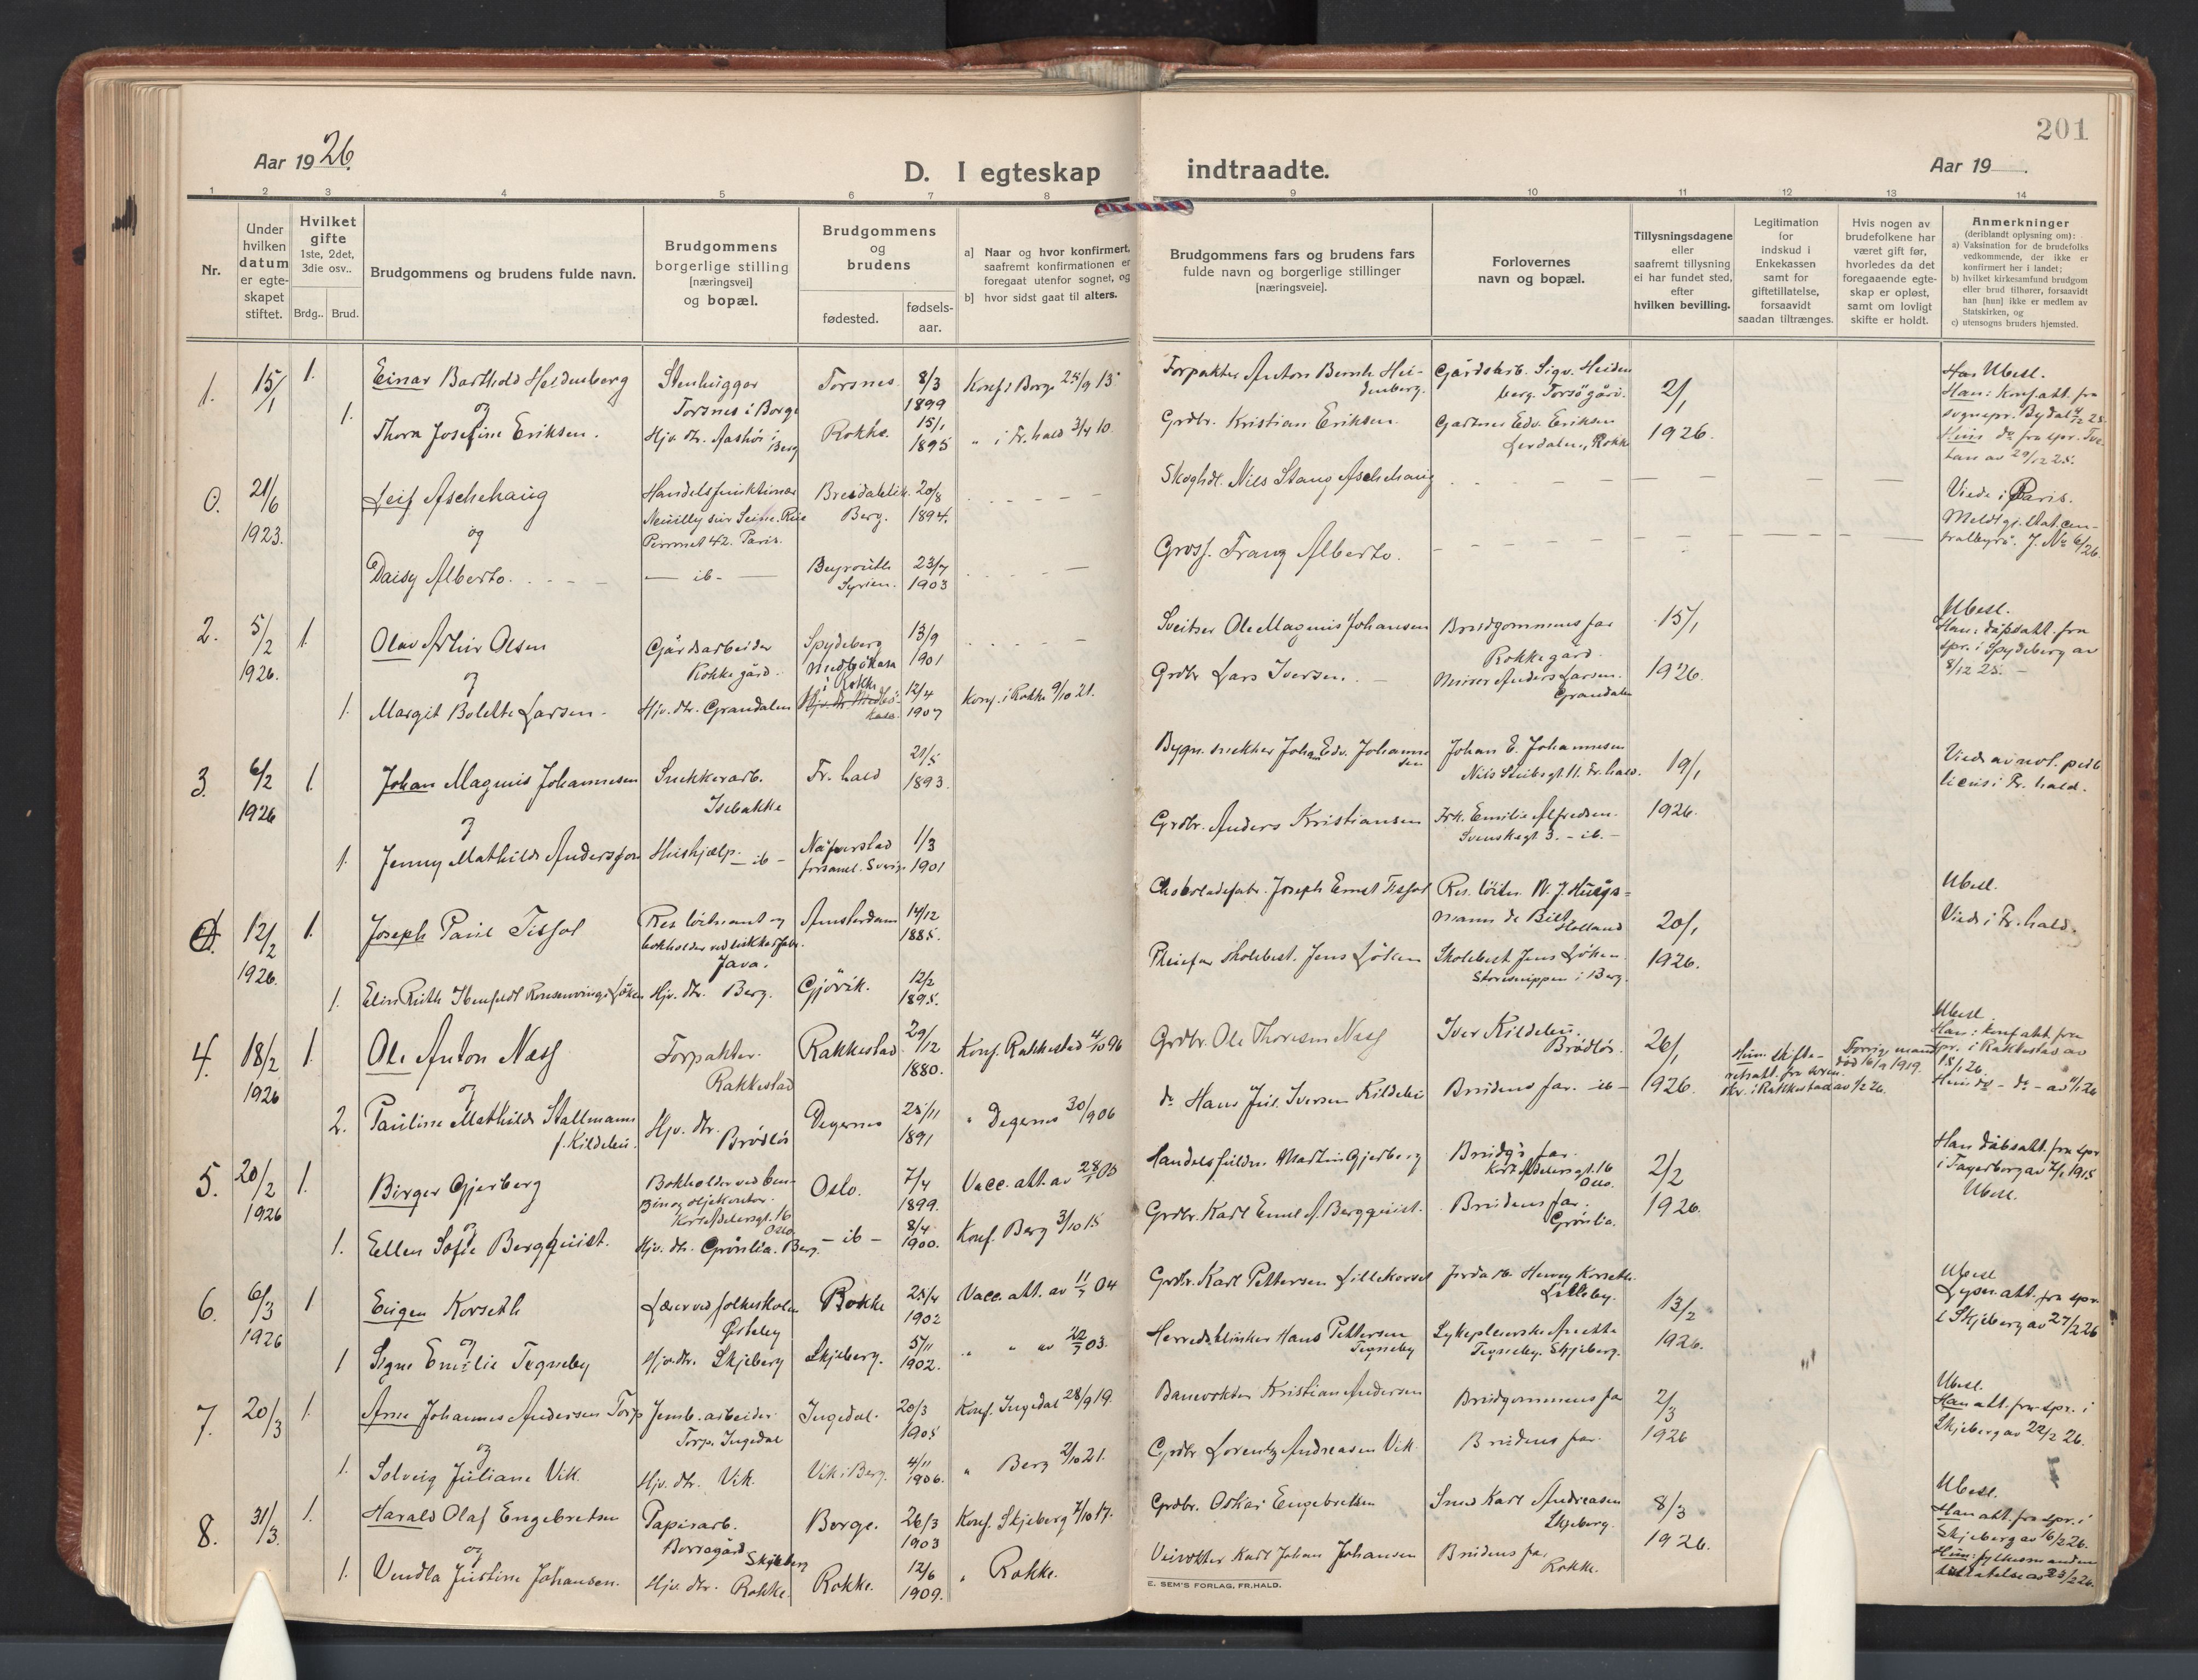 201
Aar 1926.
D. I egteskap
indtraadte.
Aar 19 .
1 2 3 4 5 6 7 8 9 10 11 12 13 14
Nr.
Under hvilken datum er egte- skapet stiftet.
Hvilket gifte 1ste, 2det, 3die osv..
Brdg.. Brud.
Brudgommens og brudens fulde navn.
Brudgommens borgerlige stilling [næringsvei] og bopæl.
Brudgommens og brudens
fødested.
fødsels- aar.
a] Naar og hvor konfirmert, saafremt konfirmationen er foregaat utenfor sognet, og
b] hvor sidst gaat til alters.
Brudgommens fars og brudens fars fulde navn og borgerlige stillinger [næringsveie].
Forlovernes navn og bopæl.
Tillysningsdagene eller saafremt tillysning ei har fundet sted, efter hvilken bevilling.
Legitimation for indskud i Enkekassen samt for giftetillatelse, forsaavidt saadan tiltrænges.
Hvis nogen av brudefolkene har været gift før, hvorledes da det foregaaende egte- skap er opløst, samt om lovligt skifte er holdt.
Anmerkninger (deriblandt oplysning om):
a) Vaksination for de brudefolks vedkommende, der ikke er konfirmert her i landet;
b) hvilket kirkesamfund brudgom eller brud tilhører, forsaavidt han [hun] ikke er medlem av Statskirken, og
c) utensogns bruders hjemsted.
1. 15/1 1. Einar Barthold Heidenberg Stenhugger Torsnes i Borge Torsnes 8/3 1899 Konf. i Borge 25/9 15 Forpakter Anton Bernh. Heidenberg. Gårdsarb. Sigv. Heidenberg. Torsögård. 2/1 1926. Ubesl.
Han: Konf.att. fra sognepr. Bydal
og
1. Thora Josefine Eriksen. Hjv. dtr. Berg Rokke. 15/1 1895 " i Fr.hald 3/4 10. Grdbr. Kristian Eriksen. Gartner Edv. Eriksen Lerdalen, Rokke
Hun do fra spr. av 29/12 25.
0. 21/6 1923. Leif Aschehaug Handelsfunktionær Neuilly sur Seine. Rue Perronet 42. Paris. Berg. 20/8 1894. Skoghdl. Nils Stang Aschehaug Viede i Paris.
Meldt gj. Stat. centralbyrå. J. No 6/26.
og
Daisy Alberto. - ib - Beyrouth Syrien. 23/7 1903 Gross. Franz Alberto.
2. 5/2 1926. 1. Olav Artur Olsen Gårdsarbeider Rokke gård. Spydeberg 13/9 1901 Sveitser Ole Magnus Johansen Brudgommens far Rokke gård. 15/1 1926. Ubesl.
Han: dåpsatt. fra spr. i Spydeberg av 8/12 25. -
og
1. Margit Bolette Larsen. Hjv. dtr. Grandalen i Rokke 12/4 1907 Konf. i Rokke 9/10 21. Grdbr Lars Iversen. Murer Anders Larsen. Grandalen
3. 6/2 1926 1. Johan Magnus Johannesen Snekkerarb. Isebakke Fr.hald 21/5 1893. Bygn. snekker Johan Edv. Johannesen Johan E. Johannesen Nils Stubsgt. 11. Fr.hald. 19/1 1926. Viede av not. publicus i Fr.hald.
og
1. Jenny Mathilde Andersson Hushjælp. - ib - Näfverstad forsaml. Sverige 1/3 1901 Grdbr. Anders Kristiansen Frk. Emilie Alfredsen. Svenskegt 3. - ib. -
4. 12/2 1926. 1. Joseph Paul Tissot Res. löitnant og bokholder ved Java. Amsterdam 14/12 1885. Chokoladefabr. Joseph Ernst Tissot Res. löitn. de Bilt Holland 20/1 1926. Ubesl.
Viede i Fr.hald.
1. Elin Ruth Ibenfeldt Rosenvinge Löken Hjv. dtr. Berg. Gjövik. 12/2 1895. Pleiefar Skolebest. Jens Löken Skolebest Jens Löken. i Berg.
4. 18/2 1926 1. Ole Anton Næss Forpakter. Rakkestad Rakkestad 29/12 1880. Konf. Rakkestad 4/10 96 Grdbr. Ole Thoresen Næss Iver Kildebu. Brödlös. 26/1 1926. Ubesl.
Han: konf att fra spr. i Rakkestad av 18/1 26.
og
2. Pauline Mathilde Stallmann f. Kildebu. Hjv. dtr. Brödlös Degernes 25/11 1891 " Degernes 30/9 06 do Hans Jul. Iversen Kildebu Brudens far. - ib - Hun skifteretsatt. fra soren skr. i Rakkestad av 1/2 26. Forrige mand död 16/9 1919.
Hun do - do - av 11/1 26
5. 20/2 1926 1. Birger Gjerberg Bokholder ved benzin og oljekontor. Kort Adelersgt. 16 Oslo. Oslo. 7/4 1899. Vacc. att. av 28/ 05 Handelsfuldm. Martin Gjerberg Brudg's far. Kort Adelersgt. 16 Oslo. 2/2 1926. Han dåbsatt. fra spr i Fagerborg av 7/1 1915
Ubesl.
og
1. Ellen Sofie Bergquist. Hjv. dtr. Grönlia. Berg. - ib - 8/4 1900. Konf. Berg 3/10 15 Grdbr. Karl Emil A. Bergquist. Brudens far. Grönlia.
6. 6/3 1926 1 Eugen Korseth Lærer ved folkeskolen Östeby Rokke 25/4 1902 Vacc. att. av 11/7 04 Grdbr. Karl Pettersen Lillekorset Henry Korseth. Lilleby. 13/2 1926. Ubesl
Lysn. att. fra spr. i Skjeberg av 27/2 26
og
1 Signe Emilie Tegneby Hjv. dtr. Skjeberg Skjeberg. 5/11 1902. " " av 22/7 03. Hans Pettersen Tegneby Sykepleierske Anette Tegneby. Skjeberg.
7. 20/3 1. Arne Johannes Andersen Torp Jernb. arbeider Torp. Ingedal Ingedal. 20/3 1905 Konf. Ingedal 28/9 19. Banevokter Kristian Andersen Brudgommens far 2/3 1926 Ubesl.
Han att. fra spr. i Skjeberg av 22/2 26.
og
1. Solveig Juliane Vik. Hjv. dtr. Vik. Vik i Berg. 4/11 1906. " Berg 2/10 21. Grdbr. Lorentz Andreasen Vik. Brudens far.
8. 31/3. 1. Harald Olaf Engebretsen Papirarb. Borregård Skjeberg Borge. 26/3 1903 Konf. Skjeberg 7/10 17. Grdbr. Oskar Engebretsen Smed Karl Andreasen Skjeberg. 8/3 1926. Ubesl.
Han att. fra spr. i Skjeberg av 16/2 26.
og
1. Vendla Justine Johansen. Hjv. dtr. Rokke. Rokke. 12/6 1909. " Rokke. Veivokter Karl Johan Johansen Brudens far, Rokke.
Hun: fylkesmanden tillatelse av 23/2 26.
E. SEM'S FORLAG, FR.HALD.